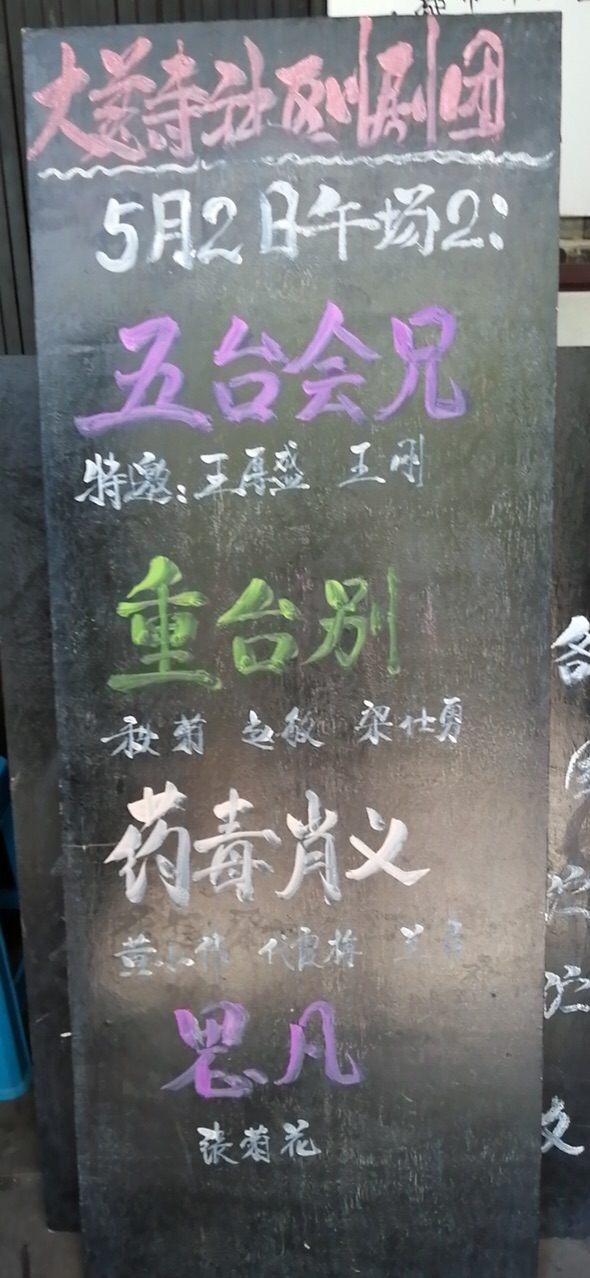 大慈寺社区川剧团
5月2日午场2:
五台会兄
特邀:王厚盛 王刚
重台别
秋菊 赵敏 梁仕勇
药毒肖义
黄小 代霞梅
思凡
张菊花